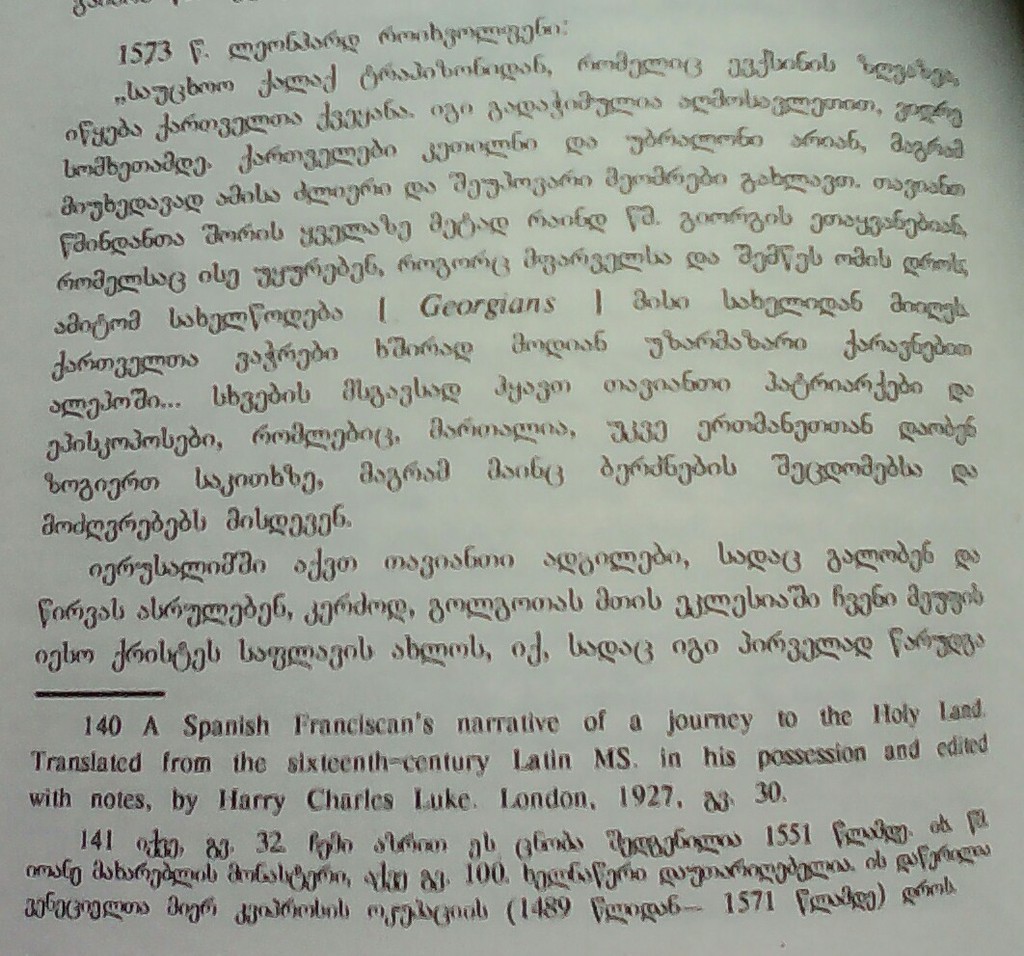 1573 წ. ლეონჰარდ როიხვოლფენი:
„საუცხოო ქალაქ ტრაპიზონიდან, რომელიც ევქსინის ზღვაზეა,
იწყება ქართველთა ქვეყანა. იგი გადაჭიმულია აღმოსავლეთით, ვიდრე
სომხეთამდე. ქართველები კეთილნი და უბრალონი არიან, მაგრამ
მიუხედავად ამისა ძლიერი და შეუპოვარი მეომრები გახლავთ. თავიანთ
წმინდანთა შორის ყველაზე მეტად რაინდ წმ. გიორგის ეთაყვანებიან,
რომელსაც ისე უყურებენ, როგორც მფარველსა და შემწეს ომის დროს,
ამიტომ სახელწოდება | Georgians | მისი სახელიდან მიიღეს
ქართველთა ვაჭრები ხშირად მოდიან უზარმაზარი ქარავნებით
ალეპოში... სხვების მსგავსად ჰყავთ თავიანთი პატრიარქები და
ეპისკოპოსები, რომლებიც, მართალია, უკვე ერთმანეთთან დაობენ
ზოგიერთ საკითხზე, მაგრამ მაინც ბერძნების შეცდომებსა და
მოძღვრებებს მისდევენ.
იერუსალიმში აქვთ თავიანთი ადგილები, სადაც გალობენ და
წირვას ასრულებენ, კერძოდ, გოლგოთას მთის ეკლესიაში ჩვენი მეუფის
იესო ქრისტეს საფლავის ახლოს, იქ, სადაც იგი პირველად წარუდგა
140 A Spanish Franciscan's narrative of a journey to the Holy Land.
Translated from the sixteenth-century Latin MS. in his possession and edited
with notes, by Harry Charles Luke. London, 1927, გვ. 30.
141 იქვე, გვ. 32. ჩემი აზრით ეს ცნობა შედგენილია 1551 წლამდე. იხ. წმ.
იოანე მახარებლის მონასტერი, იქვე გვ. 100. ხელნაწერი დაუთარიღებელია. ის დაწერილია
ვენეციელთა მიერ კვიპროსის ოკუპაციის (1489 წლიდან— 1571 წლამდე) დროს.